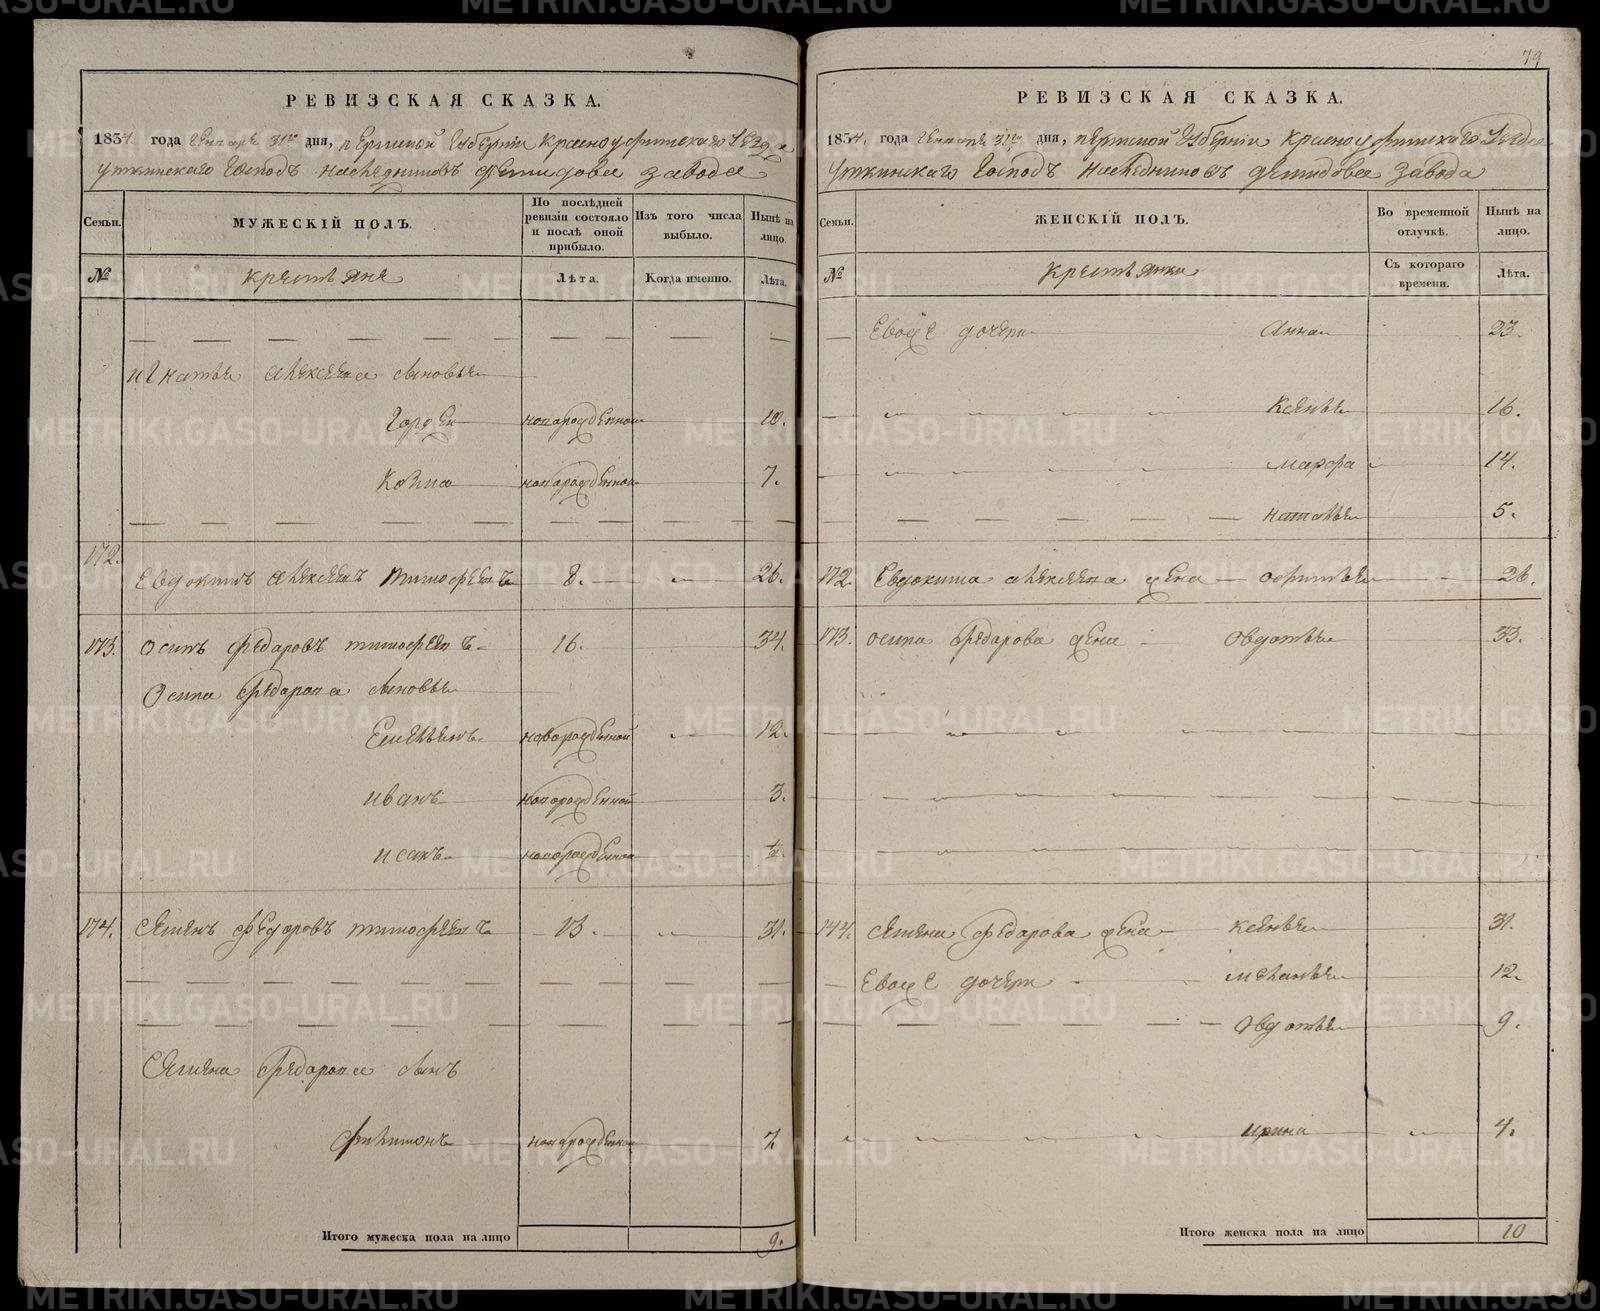 79
РЕВИЗСКАЯ СКАЗКА.
1834. года Генваря 31го дня, Пермской Губернiи Красноуфимскаго Уезда
Уткинскаго Господъ наследниковъ Демидова завода
Семьи. МУЖЕСКIЙ ПОЛЪ. По послѣдней ревизiи состояло и послѣ оной прибыло. Изъ того числа выбыло. Нынѣ на лицо.
№ крестьяне Лѣта. Когда именно. Лѣта.
Игнатья Алексеева сыновья
Гордей новорожденной 10.
Козма новорожденной 7.
172. Евдокимъ Алексеевъ Тимофеевъ 8. 26.
173. Осипъ Федаровъ тимофеевъ 16. 34.
Осипа Федарова сыновья
Емельянъ новорожденной 12.
иванъ новорожденной 3.
исакъ новорожденной ½
174. Семенъ Федоровъ тимофеевъ 13. 31.
Семена Федарова сынъ
Филимонъ новорожденной 7.
Итого мужеска пола на лицо 9.
РЕВИЗСКАЯ СКАЗКА.
1834. года Генваря 31го дня, Пермской Губернiи Красноуфимскаго Уезда
Уткинскаго Господъ наследниковъ Демидова завода
Семьи. ЖЕНСКIЙ ПОЛЪ. Во временной отлучкѣ. Нынѣ на лицо.
№ Крестьянки Съ котораго времени. Лѣта.
Евоже дочери Анна 23.
Ксенья 16.
марфа 14.
наталья 5.
172. Евдокима Алексеева жена офимья 28.
173. осипа Федарова жена Овдотья 33.
174. Семена Федарова жена ксенья 31.
Евоже дочери меланья 12.
Овдотья 9.
ирина 4.
Итого женска пола на лицо 10
METRIKI.GASO-URAL.RU